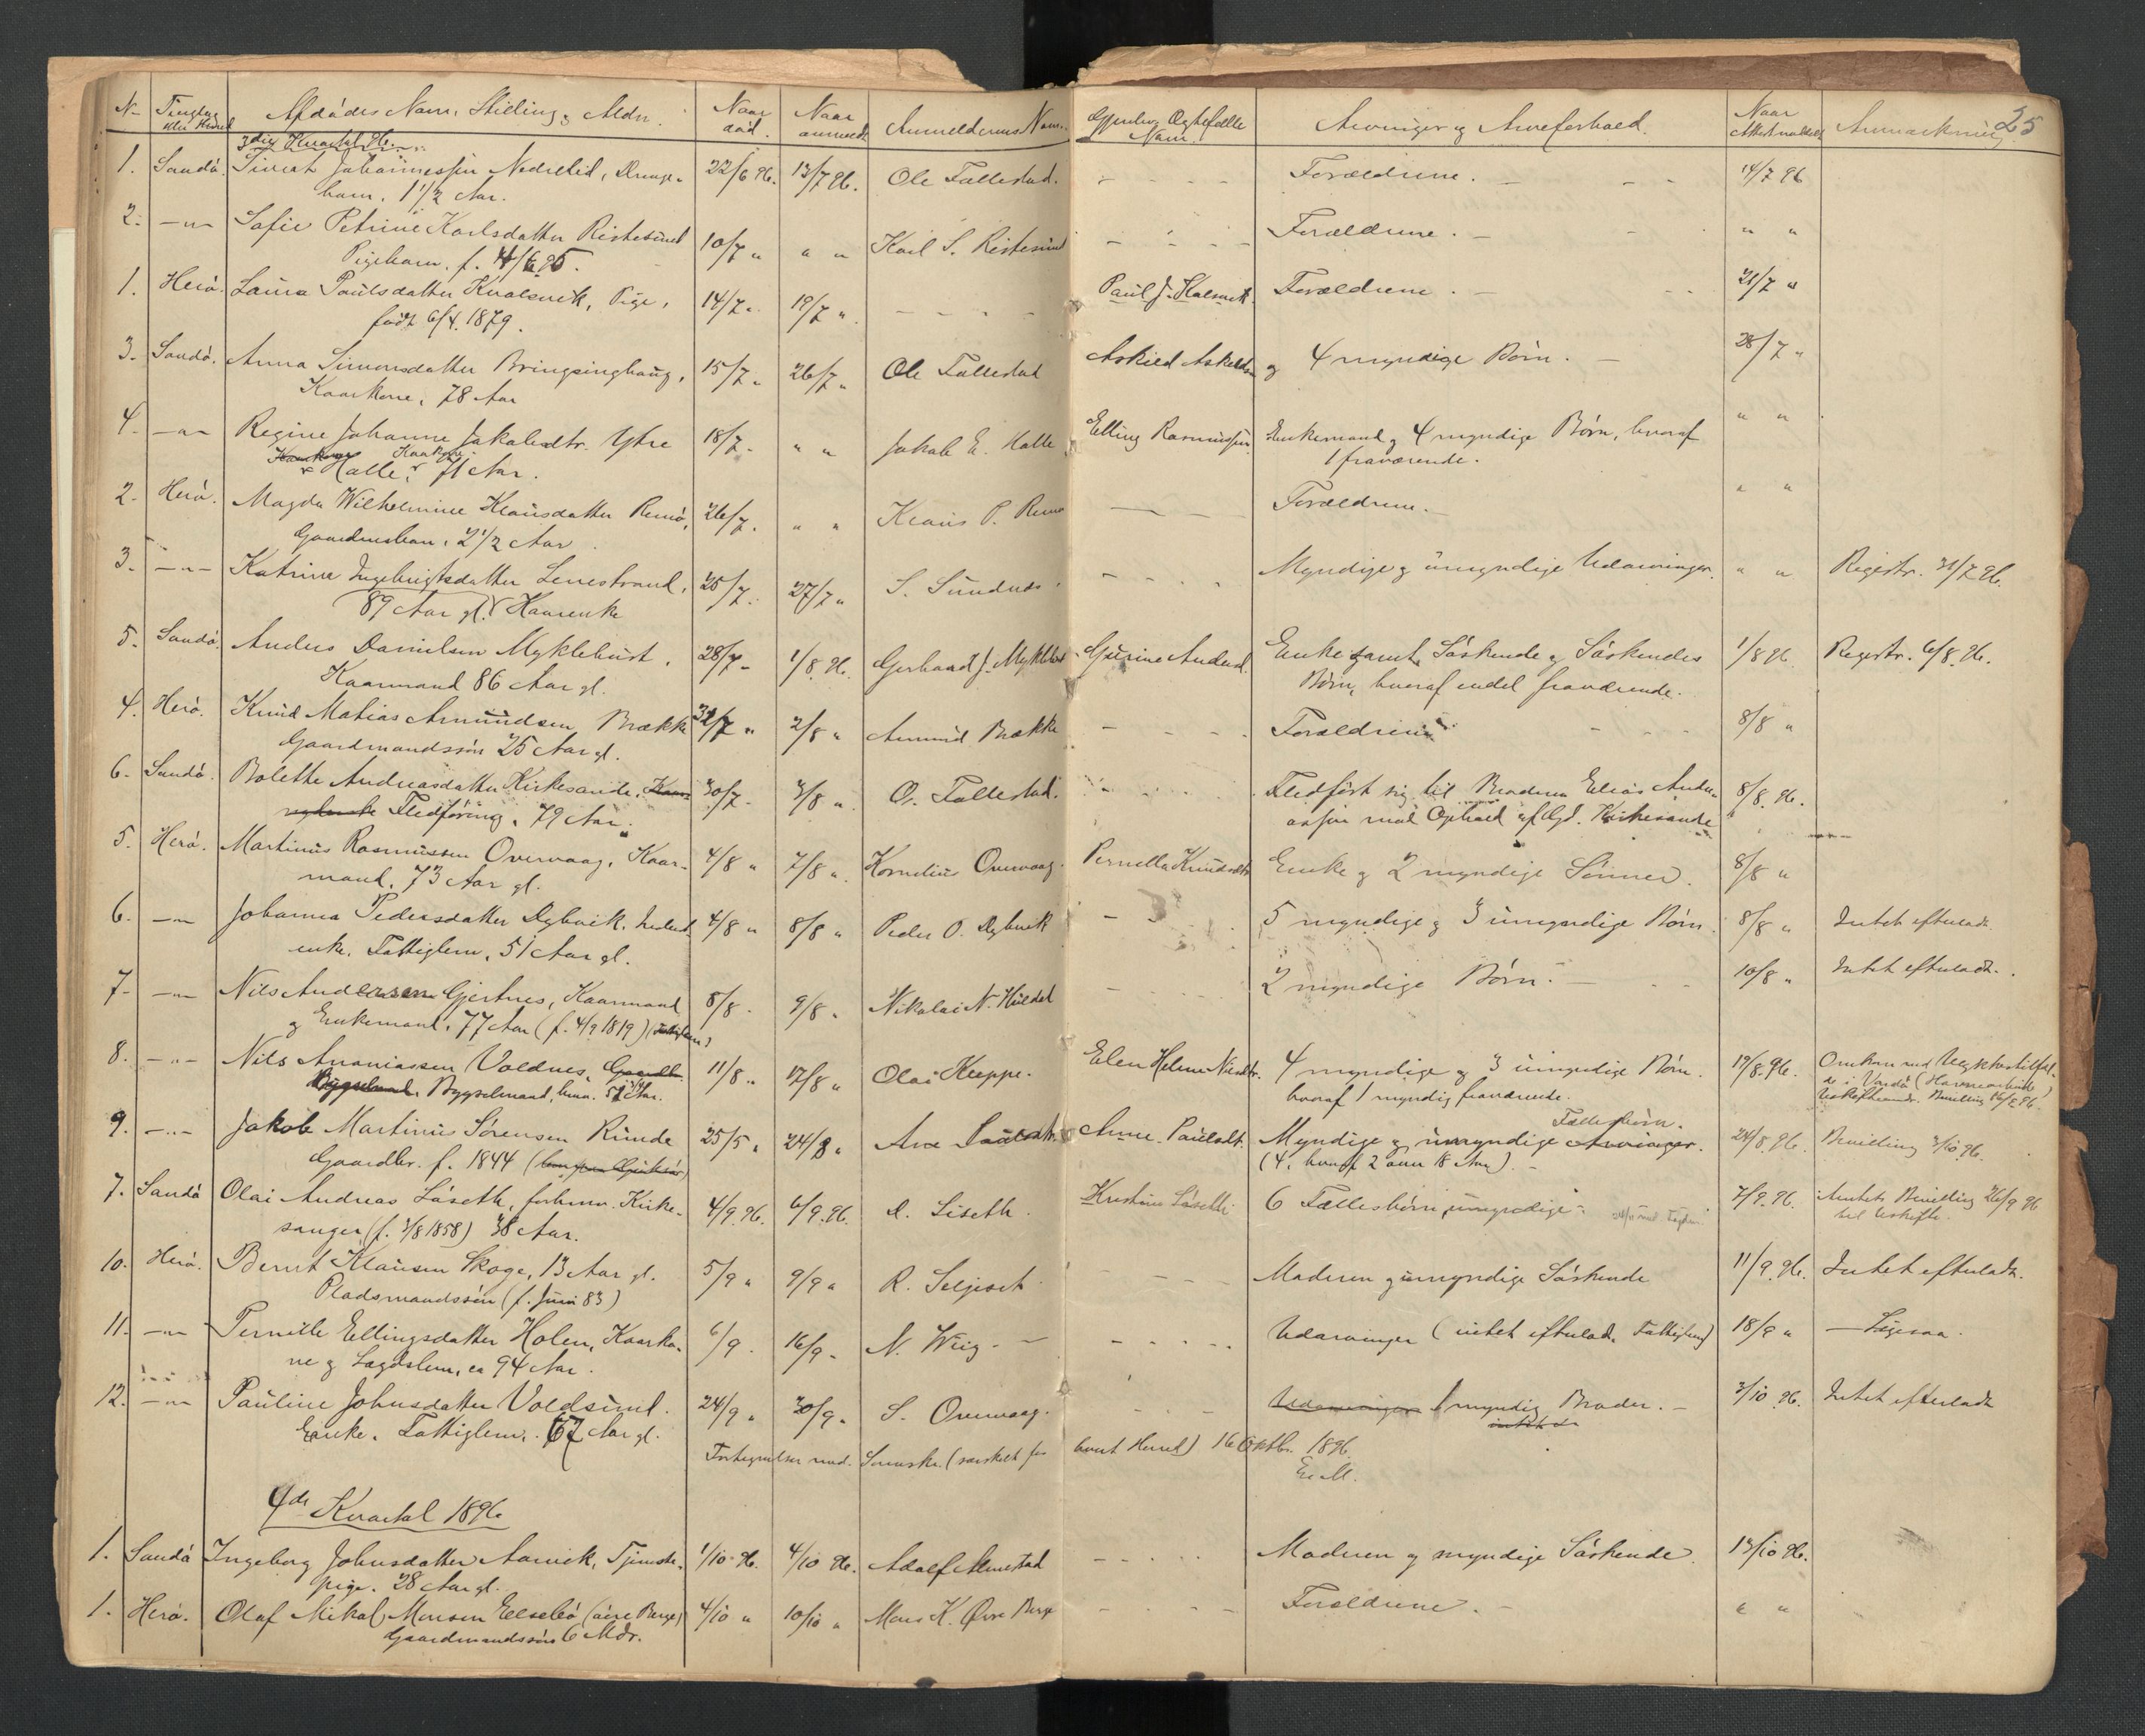 N– Tinglag eller Herred Afdødes Navn, Stilling, Alder. Naar død. Naar anmeldt Anmelderens Navn. Gjenlev. Ægtefælle Navn. Arvinger og Arveforhold. Naar Attest meddelt Anmærkning 25
3die Kvartal 96.
1. Sandø. Sivert Johannessen Nedrelid, Drenge- 22/6 96. 13/7 96. Ole Fallestad. Forældrene. 14/7 96
barn, 1 1/2 Aar.
2. –"– Sofie Petrine Karlsdatter Ristesund 10/7 " " " Karl S. Ristesund Forældrene. " "
Pigebarn, f. 4/6 95.
1. Herø. Laura Paulsdatter Kvalsvik, Pige, 14/7 " 19/7 ". Paul J. Kvalsvik Forældrene. 21/7 "
født 6/4. 1879.
3. Sandø. Anna Simonsdatter Bringsinghaug, 15/7 " 26/7 " Ole Fallestad Askild Askildsen og 4 myndige Børn. 28/7 "
Kaarkone, 78 Aar
4. –"– Regine Johanne Jakobsdtr. Ytre 18/7 " " " Jakob E. Halle Elling Rasmussen Enkemand og 4 myndige Børn, hvoraf " "
Halle, Kaarkone 71 Aar. 1 fraværende.
2. Herø. Magda Wilhelmine Klausdatter Remø, 26/7. " " Klaus P. Remø Forældrene. " "
Gaardmandsbarn, 2 1/2 Aar.
3. –"– Katrine Ingebrigtsdatter Lenestrand, 25/7. 27/7 " S. Sundnes Myndige og umyndige Udarvinger. " " Registr. 31/7 96.
89 Aar gl. Kaarenke
5. Sandø. Anders Danielsen Myklebust, 28/7 – 1/8 96. Gerhard J. Myklebust Gurine Andersd. Enke samt Søskende og Søskendes 1/8 96. Registr. 6/8. 96.
Kaarmand 86 Aar gl. Børn, hvoraf endel fraværende.
4. Herø. Knud Matias Amundsen Brække 31/7 " 2/8 " Amund Brække Forældrene 8/8 "
Gaardmandssøn 25 Aar gl.
6. Sandø. Bolette Andreasdatter Kirkesande, 30/7 – 3/8 ". O. Fallestad. Fledført sig til Broderen Elias Andre- 8/8. 96.
Fledføring, 79 Aar. assen mod Ophold af Gd. Kirkesande
5. Herø. Martinus Rasmussen Overvaag, Kaar- 4/8 " 7/8 ". Kornelius Overvaag. Pernella Knudsdtr. Enke og 2 myndige Sønner. 8/8 "
mand, 73 Aar gl.
6. –"– Johanna Pedersdatter Dybvik, Inderst- 4/8 " 8/8 " Peder O. Dybvik 5 myndige og 3 umyndige Børn. 8/8 " Intet efterladt.
enke, Fattiglem, 51 Aar gl.
7. –"– Nils Andersen Gjertnes, Kaarmand 8/8 – 9/8. Nikolai N. Huldal 2 myndige Børn. 10/8 " Intet efterladt.
og Enkemand, 77 Aar (f. 4/9 1819) (Fattiglem)
8. –"– Nils Ananiassen Voldnes, 11/8 " 17/8 " Olai Kleppe. Elen Helene Nilsdtr. 4 myndige og 3 umyndige Børn. 19/8. 96. Omkom ved Ulykkestilfæl-
Bygselmand, 57 Aar. hvoraf 1 myndig fraværende. de i Vardø (Havnearbeide)
9. –"– Jakob Martinus Sørensen Runde 25/5 " 24/8 " Ane Anne Paulsdt. Myndige og umyndige Fællesbørn. 24/8 96. Bevilling 3/10 96.
Gaardbr. f. 1844 (4, hvoraf 2 over 18 Aar).
7. Sandø Olai Andreas Liseth, forhenv. Kirke- 4/9 96. 6/9 96. A. Liseth. Kristine Liseth 6 Fællesbørn, umyndige. 7/9. 96. Amtets Bevilling 26/9 96
sanger, (f. 3/8 1858) 38 Aar. til Uskifte.
10. Herø. Bernt Klausen Skoge, 13 Aar gl. 5/9 " 9/9 " R. Seljeset Moderen og umyndige Søskende 11/9 96. Intet efterladt.
Pladsmandssøn (f. Juni 83)
11. –"– Pernille Ellingsdatter Holen, Kaarko- 6/9. 16/9 – N. Wiig. Udarvinger (intet efterladt, Fattiglem) 18/9 " – Ligesaa.
ne og Lægdslem, ca 94 Aar.
12. –"– Pauline Johnsdatter Voldsund. 24/9 " 30/9 " S. Overvaag. Udarvinger 1 myndig Broder. – 3/10 96. Intet efterladt
Enke, Fattiglem, 67 Aar gl.
Fortegnelser med. (særskilt for hvert Herred) 16 Oktbr. 1896.
4de Kvartal 1896
1. Sandø Ingeborg Johnsdatter Aarvik, Tjeneste- 1/10 96. 4/10 96. Adolf Almestad Moderen og myndige Søskende. 13/10 96.
pige, 28 Aar gl.
1. Herø. Olaf Mikal Monsen Eelsebø (øvre Berge) 4/10 " 10/10 " Mons K. Øvre Berge Forældrene. " "
Gaardmandssøn 6 Mdr.